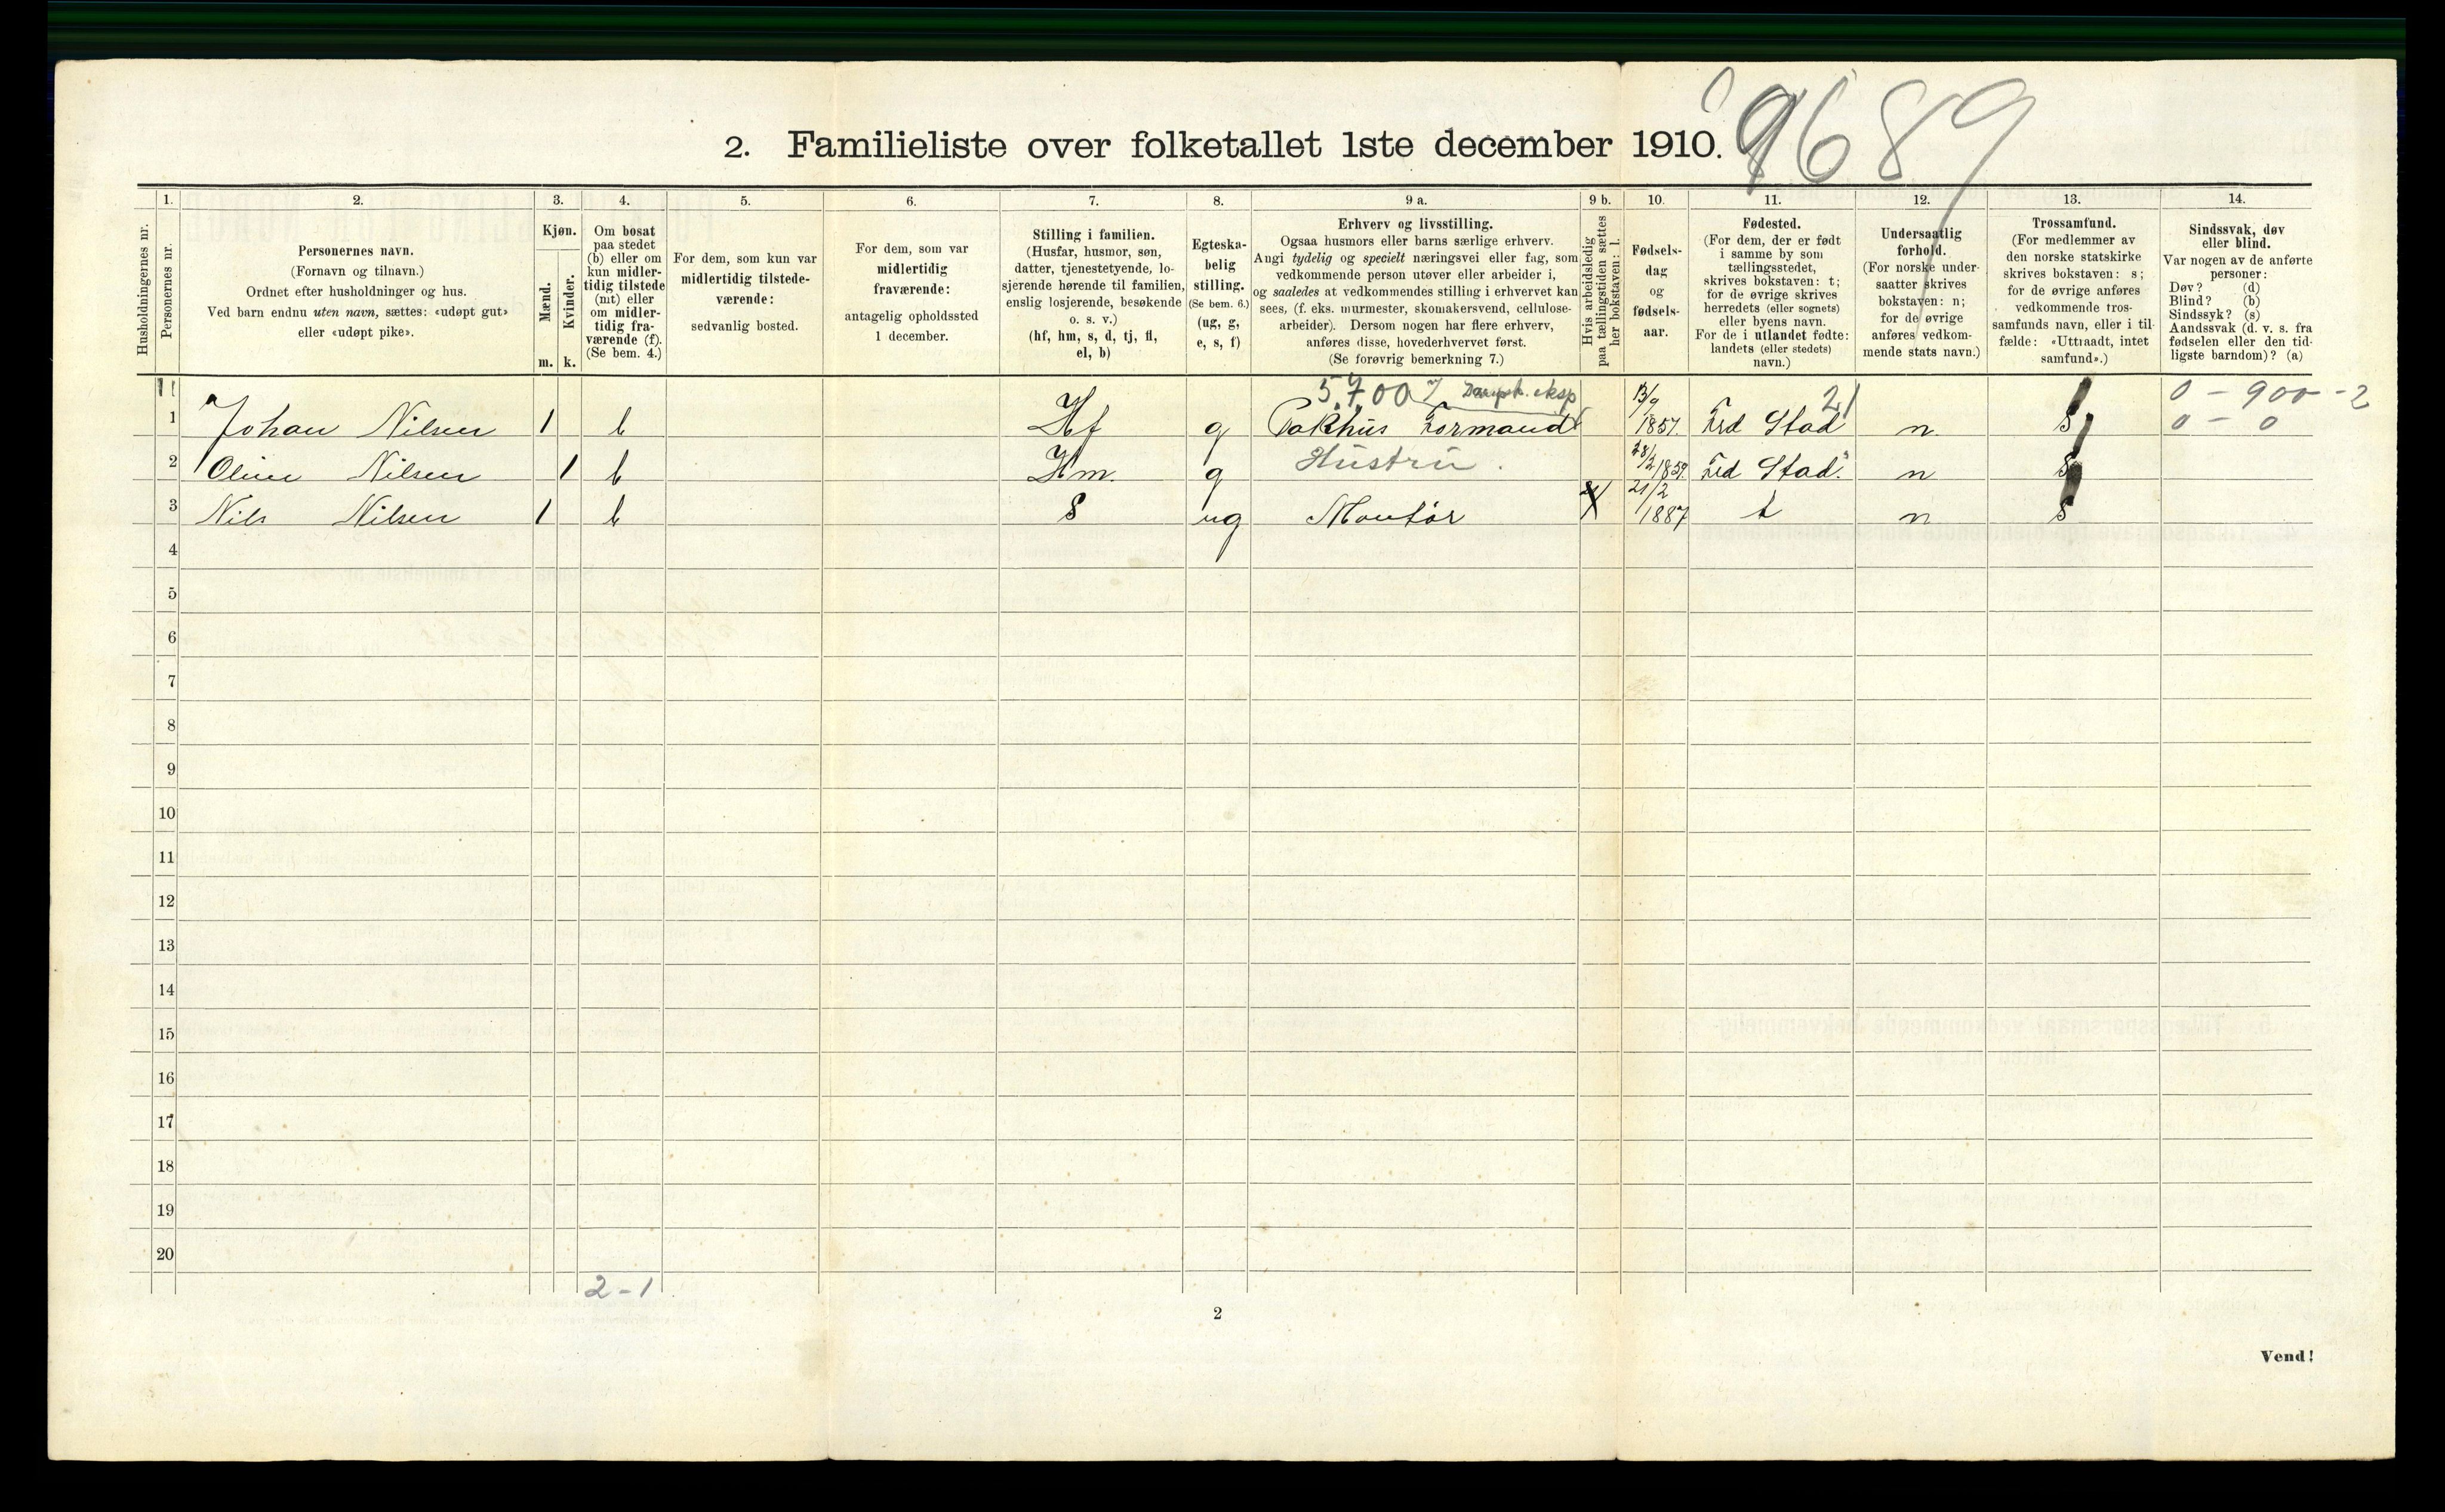 9689
2. Familieliste over folketallet 1ste december 1910.
1. 2. 3. 4. 5. 6. 7. 8. 9 a. 9 b. 10. 11. 12. 13. 14.
Husholdningernes nr.
Personernes nr.
Personernes navn.
(Fornavn og tilnavn.)
Ordnet efter husholdninger og hus.
Ved barn endnu uten navn, sættes: «udøpt gut»
eller «udøpt pike».
Kjøn.
Mænd.
Kvinder.
m. k.
Om bosat
paa stedet
(b) eller om
kun midler-
tidig tilstede
(mt) eller
om midler-
tidig fra-
værende (f).
(Se bem. 4.)
For dem, som kun var
midlertidig tilstede-
værende:
sedvanlig bosted.
For dem, som var
midlertidig
fraværende:
antagelig opholdssted
1 december.
Stilling i familien.
(Husfar, husmor, søn,
datter, tjenestetyende, lo-
sjerende hørende til familien,
enslig losjerende, besøkende
o. s. v.)
(hf, hm, s, d, tj, fl,
el, b)
Egteska-
belig
stilling.
(Se bem. 6.)
(ug, g,
e, s, f)
Erhverv og livsstilling.
Ogsaa husmors eller barns særlige erhverv.
Angi tydelig og specielt næringsvei eller fag, som
vedkommende person utøver eller arbeider i,
og saaledes at vedkommendes stilling i erhvervet kan
sees, (f. eks. murmester, skomakersvend, cellulose-
arbeider). Dersom nogen har flere erhverv,
anføres disse, hovederhvervet først.
(Se forøvrig bemerkning 7.)
Hvis arbeidsledig
paa tællingstiden sættes
her bokstaven: l.
Fødsels-
dag
og
fødsels-
aar.
Fødested.
(For dem, der er født
i samme by som
tællingsstedet,
skrives bokstaven: t;
for de øvrige skrives
herredets (eller sognets)
eller byens navn.
For de i utlandet fødte:
landets (eller stedets)
navn.)
Undersaatlig
forhold.
(For norske under-
saatter skrives
bokstaven: n;
for de øvrige
anføres vedkom-
mende stats navn.)
Trossamfund.
(For medlemmer av
den norske statskirke
skrives bokstaven: s;
for de øvrige anføres
vedkommende tros-
samfunds navn, eller i til-
fælde: «Uttraadt, intet
samfund».)
Sindssvak, døv
eller blind.
Var nogen av de anførte
personer:
Døv? (d)
Blind? (b)
Sindssyk? (s)
Aandssvak (d. v. s. fra
fødselen eller den tid-
ligste barndom)? (a)
5.700 Dampsk. eksp 21 0 - 900 - 2
1 Johan Nilsen 1 b Hf g Pakhus Formand 13/9 1857. Frd Stad n s 0 - 0
2 Oline Nilsen 1 b Hm. g Hustru. 28/2 1859. Frd Stad. n s
3 Nils Nilsen 1 b s ug Montør 21/2 1887 t n s
4
5
6
7
8
9
10
11
12
13
14
15
16
17
18
19
20
2-1
2
Vend!